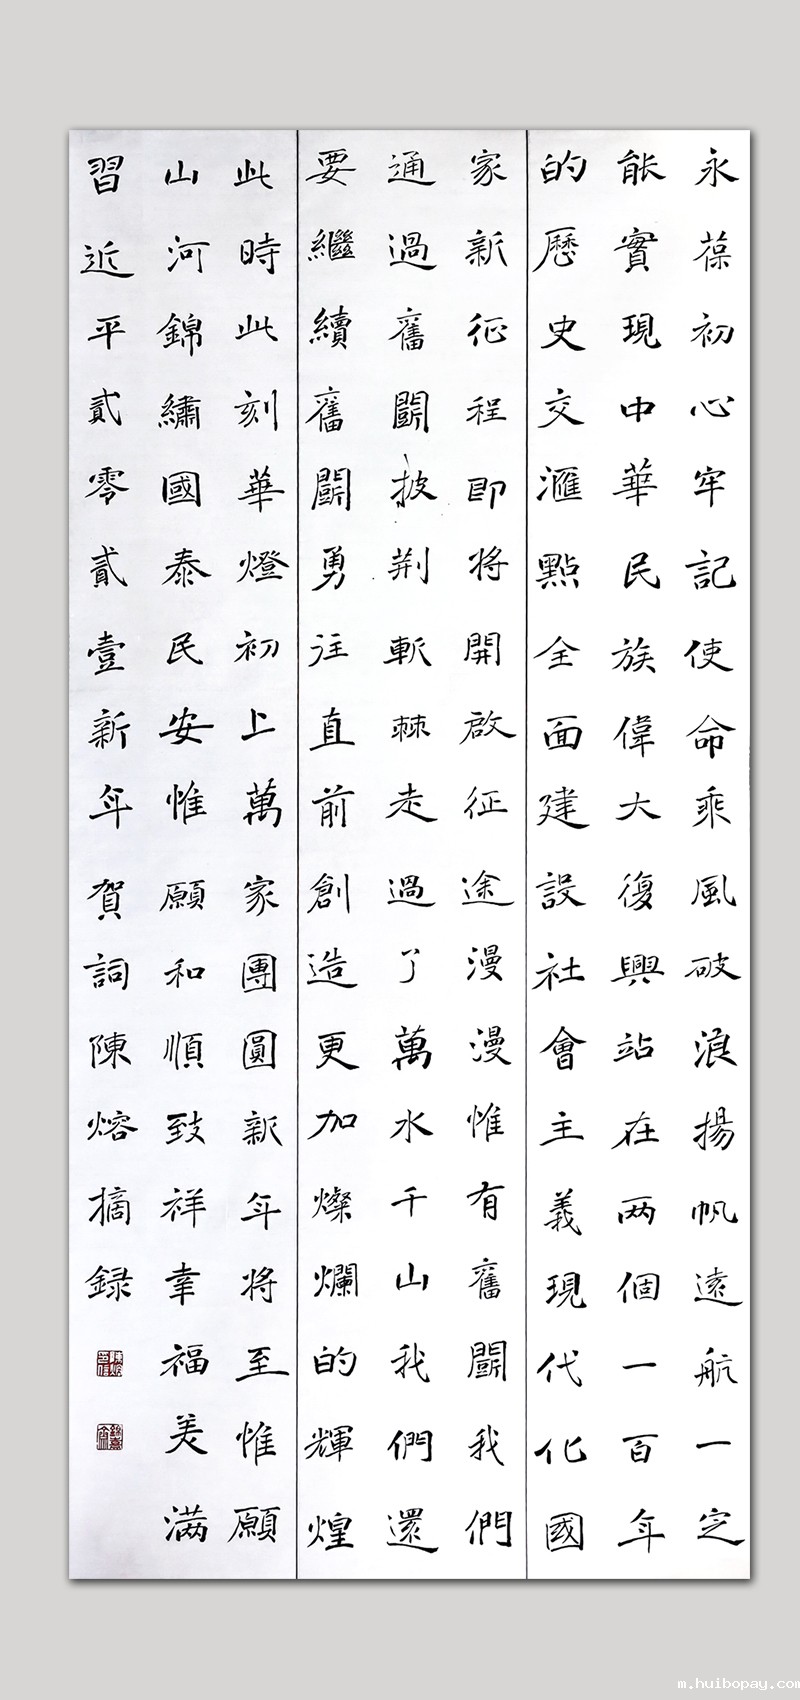 永葆初心牢記使命乘風破浪揚帆遠航一定
能實現中華民族偉大復興站在两個一百年
的歷史交滙點全面建設社會主義現代化國
家新征程即将開啟征途漫漫惟有奮闘我們
通過奮闘披荆斬棘走過了萬水千山我們還
要繼續奮闘勇往直前創造更加燦爛的輝煌
此時此刻華燈初上萬家團圓新年将至惟願
山河錦繡國泰民安惟願和順致祥幸福美满
習近平貳零貳壹新年賀詞陳熔摘録
m.huibopay.com